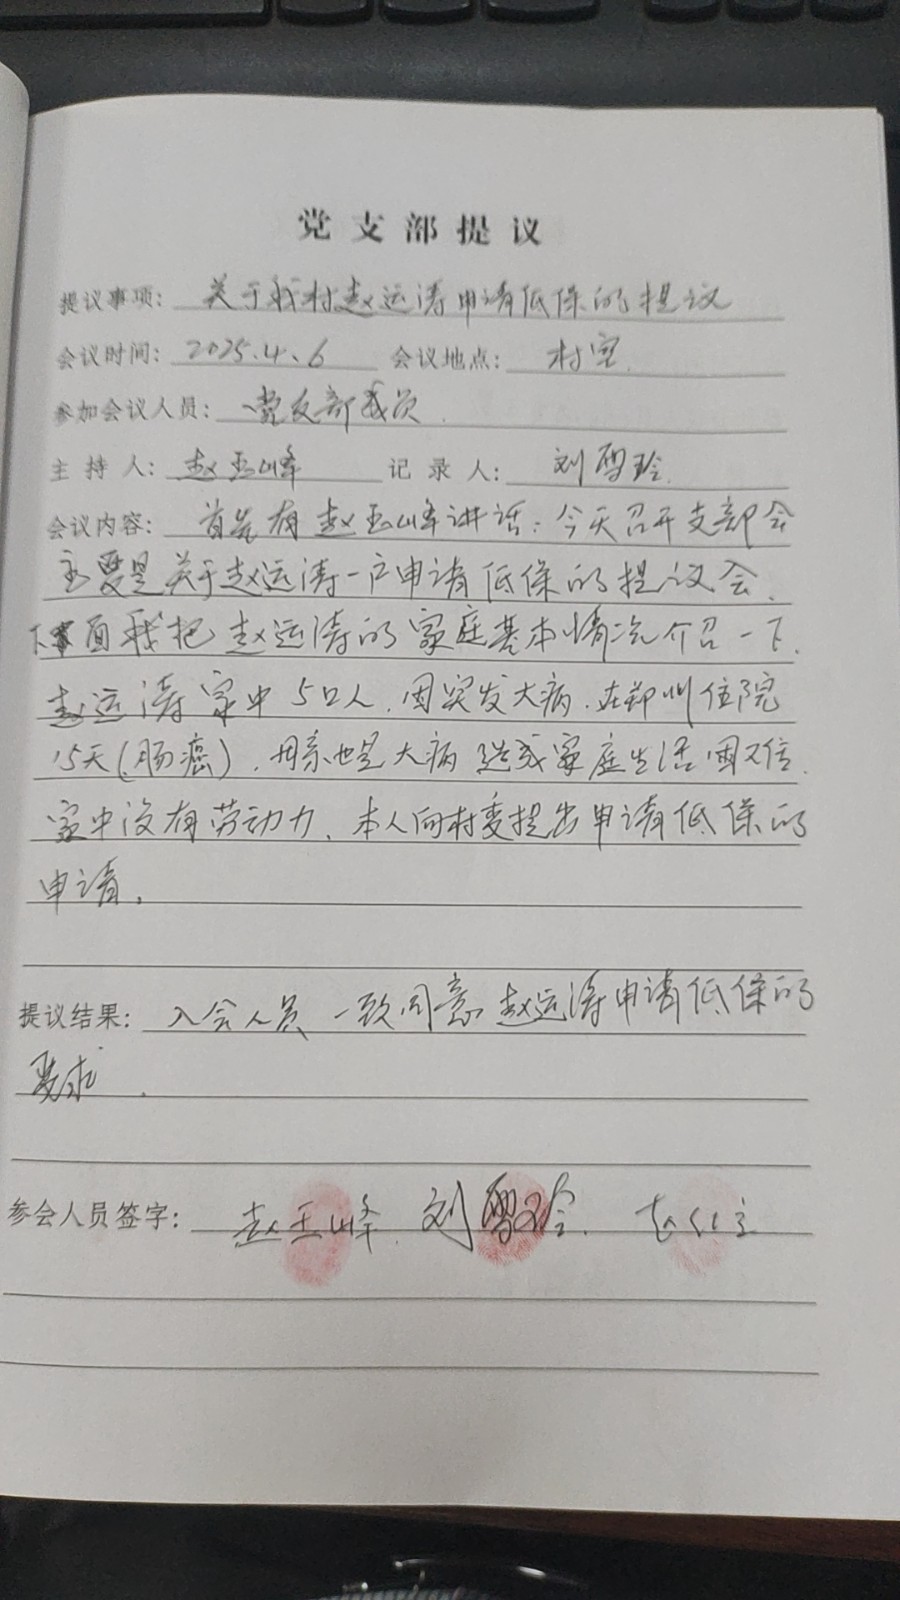 党支部提议
提议事项：关于我村赵运涛申请低保的提议
会议时间：2025.4.6 会议地点：村室.
参加会议人员：党支部成员.
主持人：赵玉峰 记录人：刘雪玲.
会议内容：首先有赵玉峰讲话：今天召开支部会
主要是关于赵运涛一户申请低保的提议会.
下面我把赵运涛的家庭基本情况介绍一下.
赵运涛家中5口人.因突发大病.在郑州住院
15天(肠癌).母亲也是大病造成家庭生活困难.
家中没有劳动力.本人向村委提出申请低保的
申请.
提议结果：入会人员一致同意赵运涛申请低保的
要求.
参会人员签字：赵玉峰.刘雪玲.